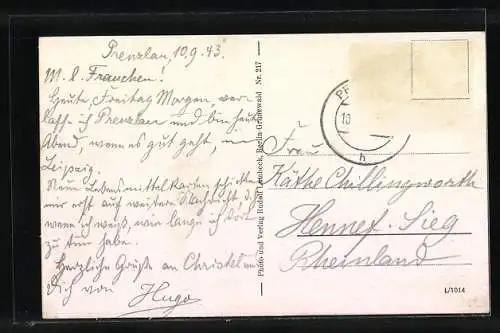 Prenzlau, 10.9.43.
M. l. Frauchen!
Heute, Freitag Morgen, ver-
lasse ich Prenzlau und bin heute
Abend, wenn es gut geht, in
Leipzig.
Neue Lebensmittelkarten schickt
mir erst auf weitere Nachricht, d. h.
wenn ich weiß, wie lange ich dort
zu tun habe.
Herzliche Grüße an Christel und
Dich von
Hugo
Photo und Verlag Rudolf Lambeck, Berlin-Grunewald Nr. 217
PR
10
h
Frau
Käthe Chillingworth
Hennef-Sieg
Rheinland
L/1014